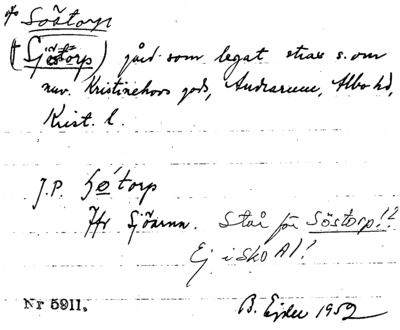 Söstorp
(Sjöstorp) gård som legat strax s. om
nuv. Kristinehovs gods, Andrarum, Albo hd,
Krist. l.
J.P. torp
Jfr Sjöarna. Står för Söstorp!?
Ej i sko Al!
Nr 5911.
B. Ejder 1952